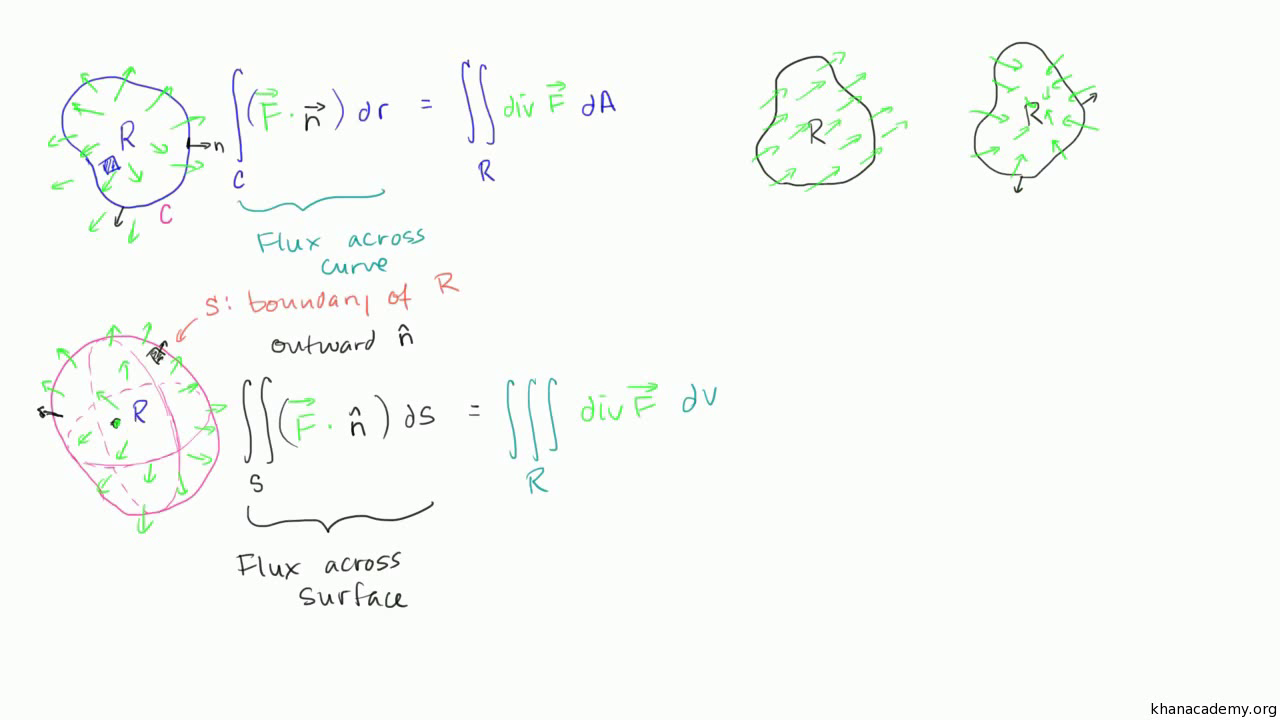 R
n
C
∫ (F⃗ · n⃗) dr = ∬ div F⃗ dA
C
R
Flux across
curve
S: boundary of R
outward n̂
R
∬ (F⃗ · n̂) ds = ∭ div F⃗ dv
S
R
Flux across
surface
R
R
khanacademy.org